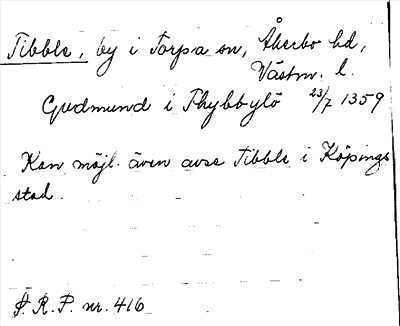 Tibble, by i Torpa sn, Åkerbo hd,
Västm. l.
Gudmund i Thybbylö 23/7 1359
Kan möjl. även avse Tibble i Köpings
stad.
S. R. P. nr. 416